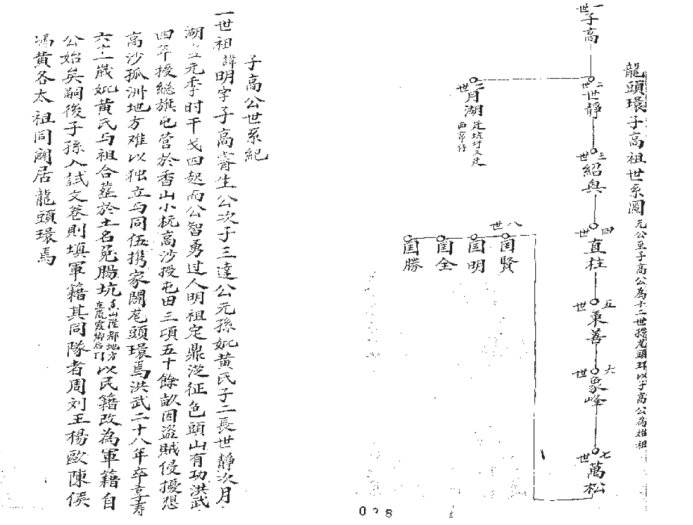 龍頭環子高祖世系圖 元公至子高公為十二世孫龍頭環以子高公為始祖
一世 子高
二世 世靜
二世 月湖
三世 紹興
四世 直柱
五世 東善
六世 象峰
七世 萬松
八世 閏賢
閏明
閏全
閏勝
子高公世系紀
一世祖諱明字子高壽生公次子三達公元孫妣黃氏子二長世靜次月
湖公元季时干戈四起而公智勇过人明祖定鼎泛征色頭山有功洪武
四年授總旗屯营於香山小杬高沙授屯田三項五十餘畝因盜賊侵擾恐
高沙孤洲地方难以独立与同伍携家闢龙頭環焉洪武二十八年卒 壽
六十二歲妣黃氏与祖合葬於土名兔腸坑 以民籍改為軍籍自
公始矣嗣後子孫入試文卷則填軍籍其同隊者周刘王楊歐陳侯
馮黃各太祖同闢居龍頭環焉
028